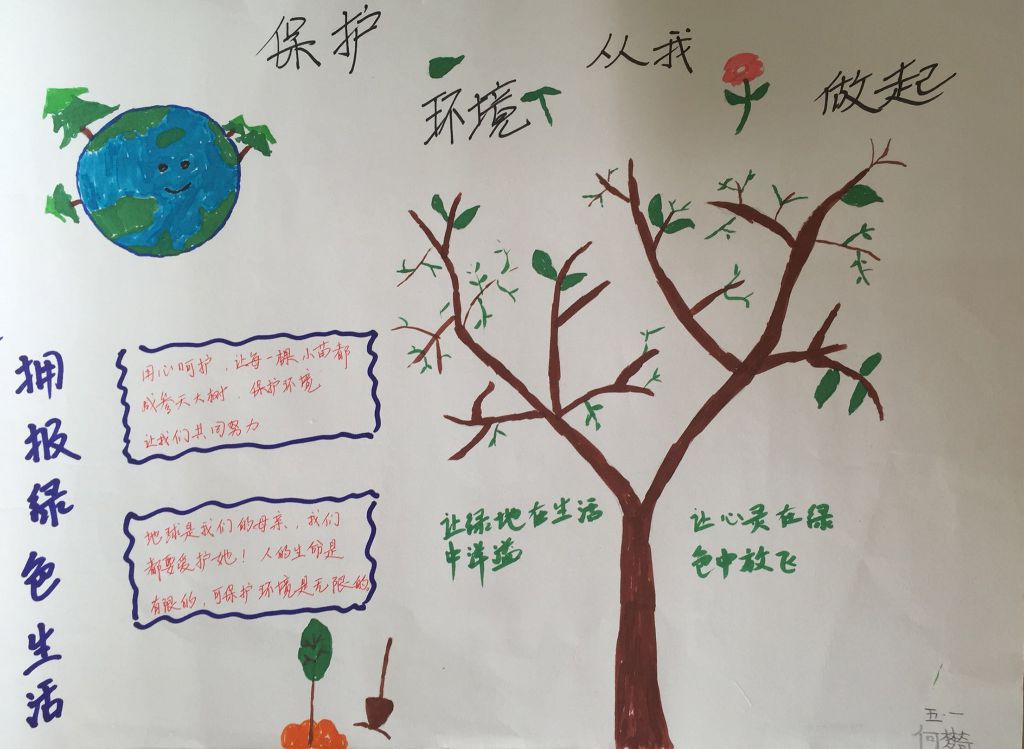 保护
环境
从我
做起
拥报绿色生活
用心呵护，让每一棵小苗都
成参天大树．保护环境
让我们共同努力
地球是我们的母亲，我们
都要爱护她！人的生命是
有限的，可保护环境是无限的
让绿地在生活
中洋溢
让心灵在绿
色中放飞
五．一
何